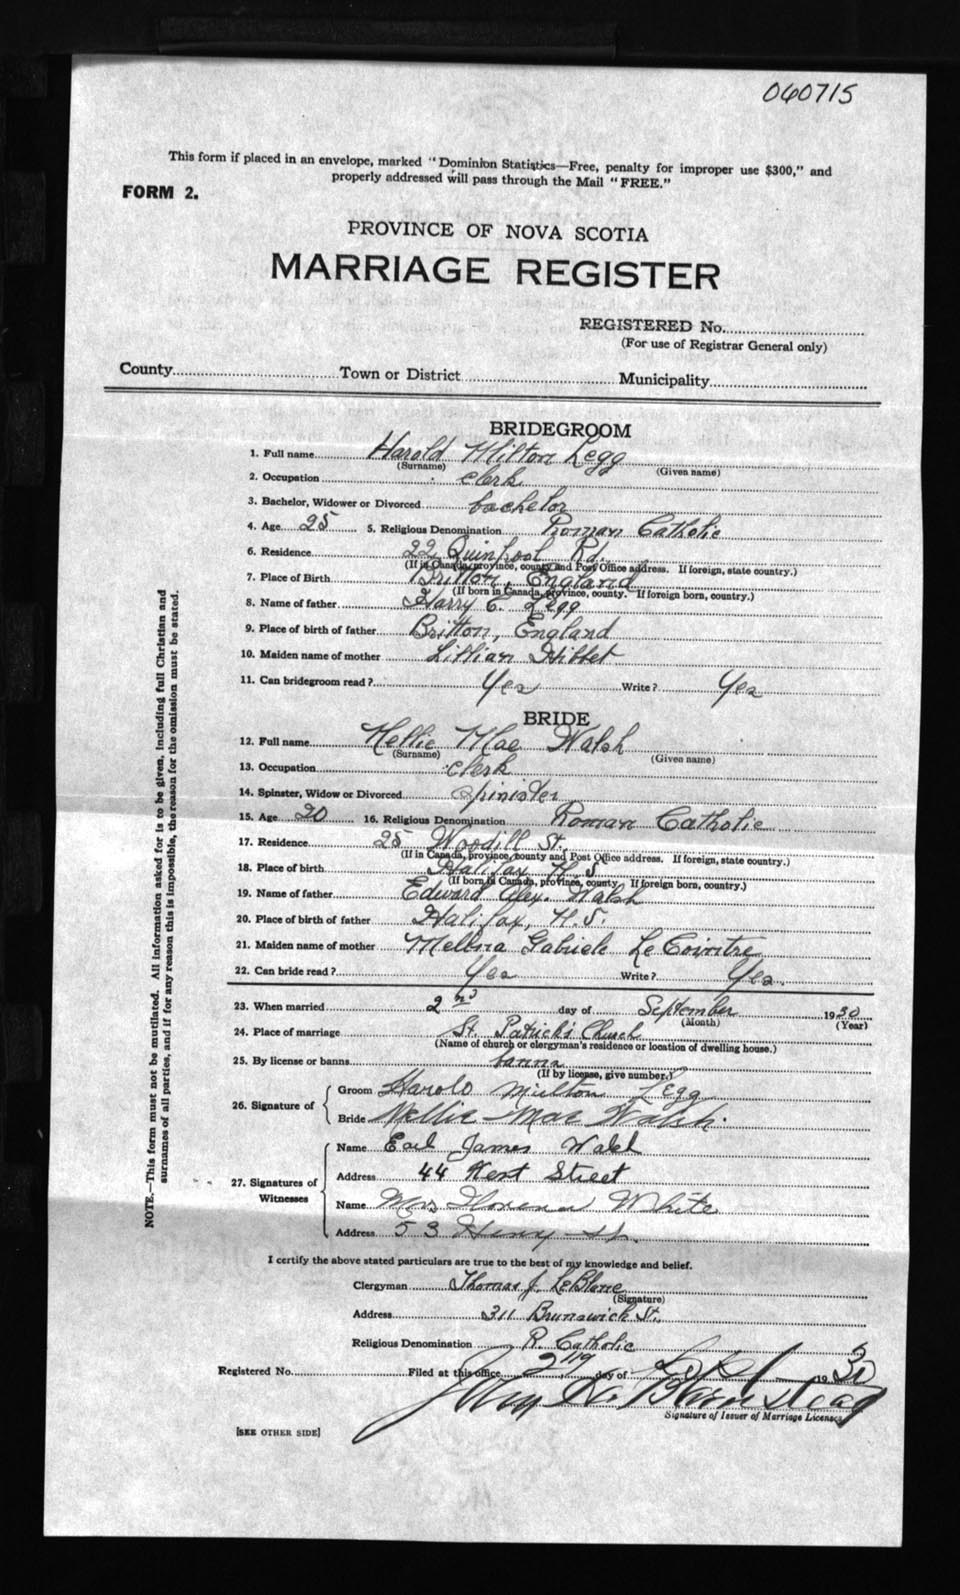 060715
This form if placed in an envelope, marked "Dominion Statistics—Free, penalty for improper use $300," and
properly addressed will pass through the Mail "FREE."
FORM 2.
PROVINCE OF NOVA SCOTIA
MARRIAGE REGISTER
REGISTERED No.
(For use of Registrar General only)
County Town or District Municipality
BRIDEGROOM
1. Full name Harold Milton Legg
(Surname) (Given name)
2. Occupation clerk
3. Bachelor, Widower or Divorced bachelor
4. Age 25 5. Religious Denomination Roman Catholic
6. Residence 22 Quinpool Rd.
(If in Canada, province, county and Post Office address. If foreign, state country.)
7. Place of Birth Britton, England
(If born in Canada, province, county. If foreign born, country.)
8. Name of father Harry E. Legg
9. Place of birth of father Britton, England
10. Maiden name of mother Lillian Hibbet
11. Can bridegroom read? Yes Write? Yes
BRIDE
12. Full name Nellie Mae Walsh
(Surname) (Given name)
13. Occupation clerk
14. Spinster, Widow or Divorced Spinister
15. Age 20 16. Religious Denomination Roman Catholic
17. Residence 25 Woodill St.
(If in Canada, province, county and Post Office address. If foreign, state country.)
18. Place of birth Halifax N.S
(If born in Canada, province, county. If foreign born, country.)
19. Name of father Edward Alex. Walsh
20. Place of birth of father Halifax, N.S.
21. Maiden name of mother Mellina Gabriele Le
22. Can bride read? Yes Write? Yes.
23. When married 2nd day of September 1930
(Month) (Year)
24. Place of marriage St. Patrick's Church
(Name of church or clergyman's residence or location of dwelling house.)
25. By license or banns banns
(If by license, give number.)
26. Signature of
Groom Harold Milton Legg
Bride Nellie Mae Walsh.
27. Signatures of Witnesses
Name Earl James Walsh
Address 44 Kent Street
Name Mrs Florence White
Address 53 Henry St.
I certify the above stated particulars are true to the best of my knowledge and belief.
Clergyman Thomas J. LeBlanc
(Signature)
Address 311 Brunswick St.
Religious Denomination R. Catholic
Registered No. Filed at this office day of 1930
Signature of Issuer of Marriage Licenses
[SEE OTHER SIDE]
NOTE.—This form must not be mutilated. All information asked for is to be given, including full Christian and
surnames of all parties, and if for any reason this is impossible, the reason for the omission must be stated.